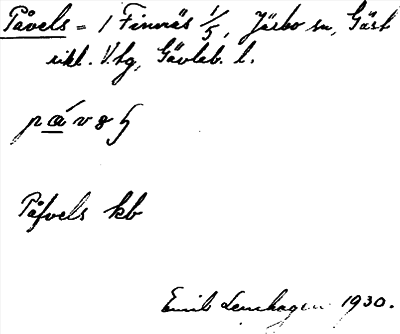 Påvels = 1 Finnäs 1/5, Järbo sn, Gäst
rikl. V.tg, Gävleb. l.
Påfvels kb
Emil Lenhagen 1930.